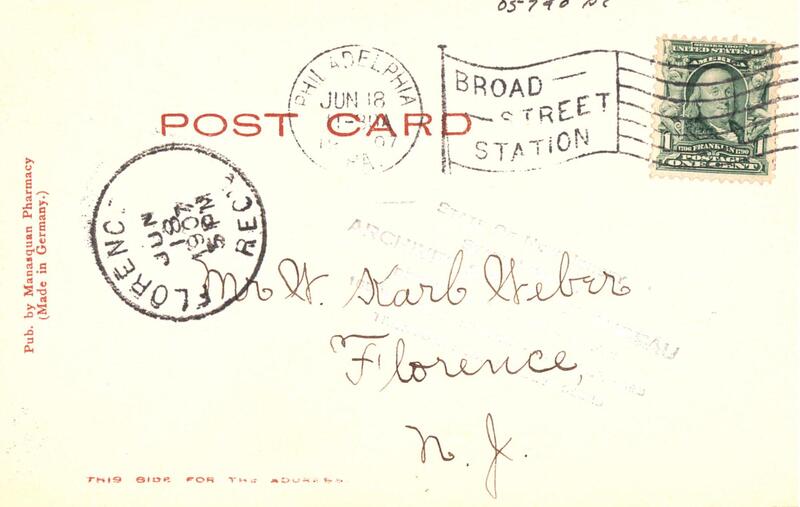 SERIES 1902
UNITED STATES OF
AMERICA
1 1706 FRANKLIN 1790 1
POSTAGE
ONE CENT
PHILADELPHIA
JUN 18
PA.
BROAD
STREET
STATION
POST CARD
FLORENC
JUN
18
1907
5 PM
REC
Pub. by Manasquan Pharmacy
(Made in Germany.)
STATE OF
ARCHIV
Mr W. Karb Weber
Florence,
N. J.
THIS SIDE FOR THE ADDRESS